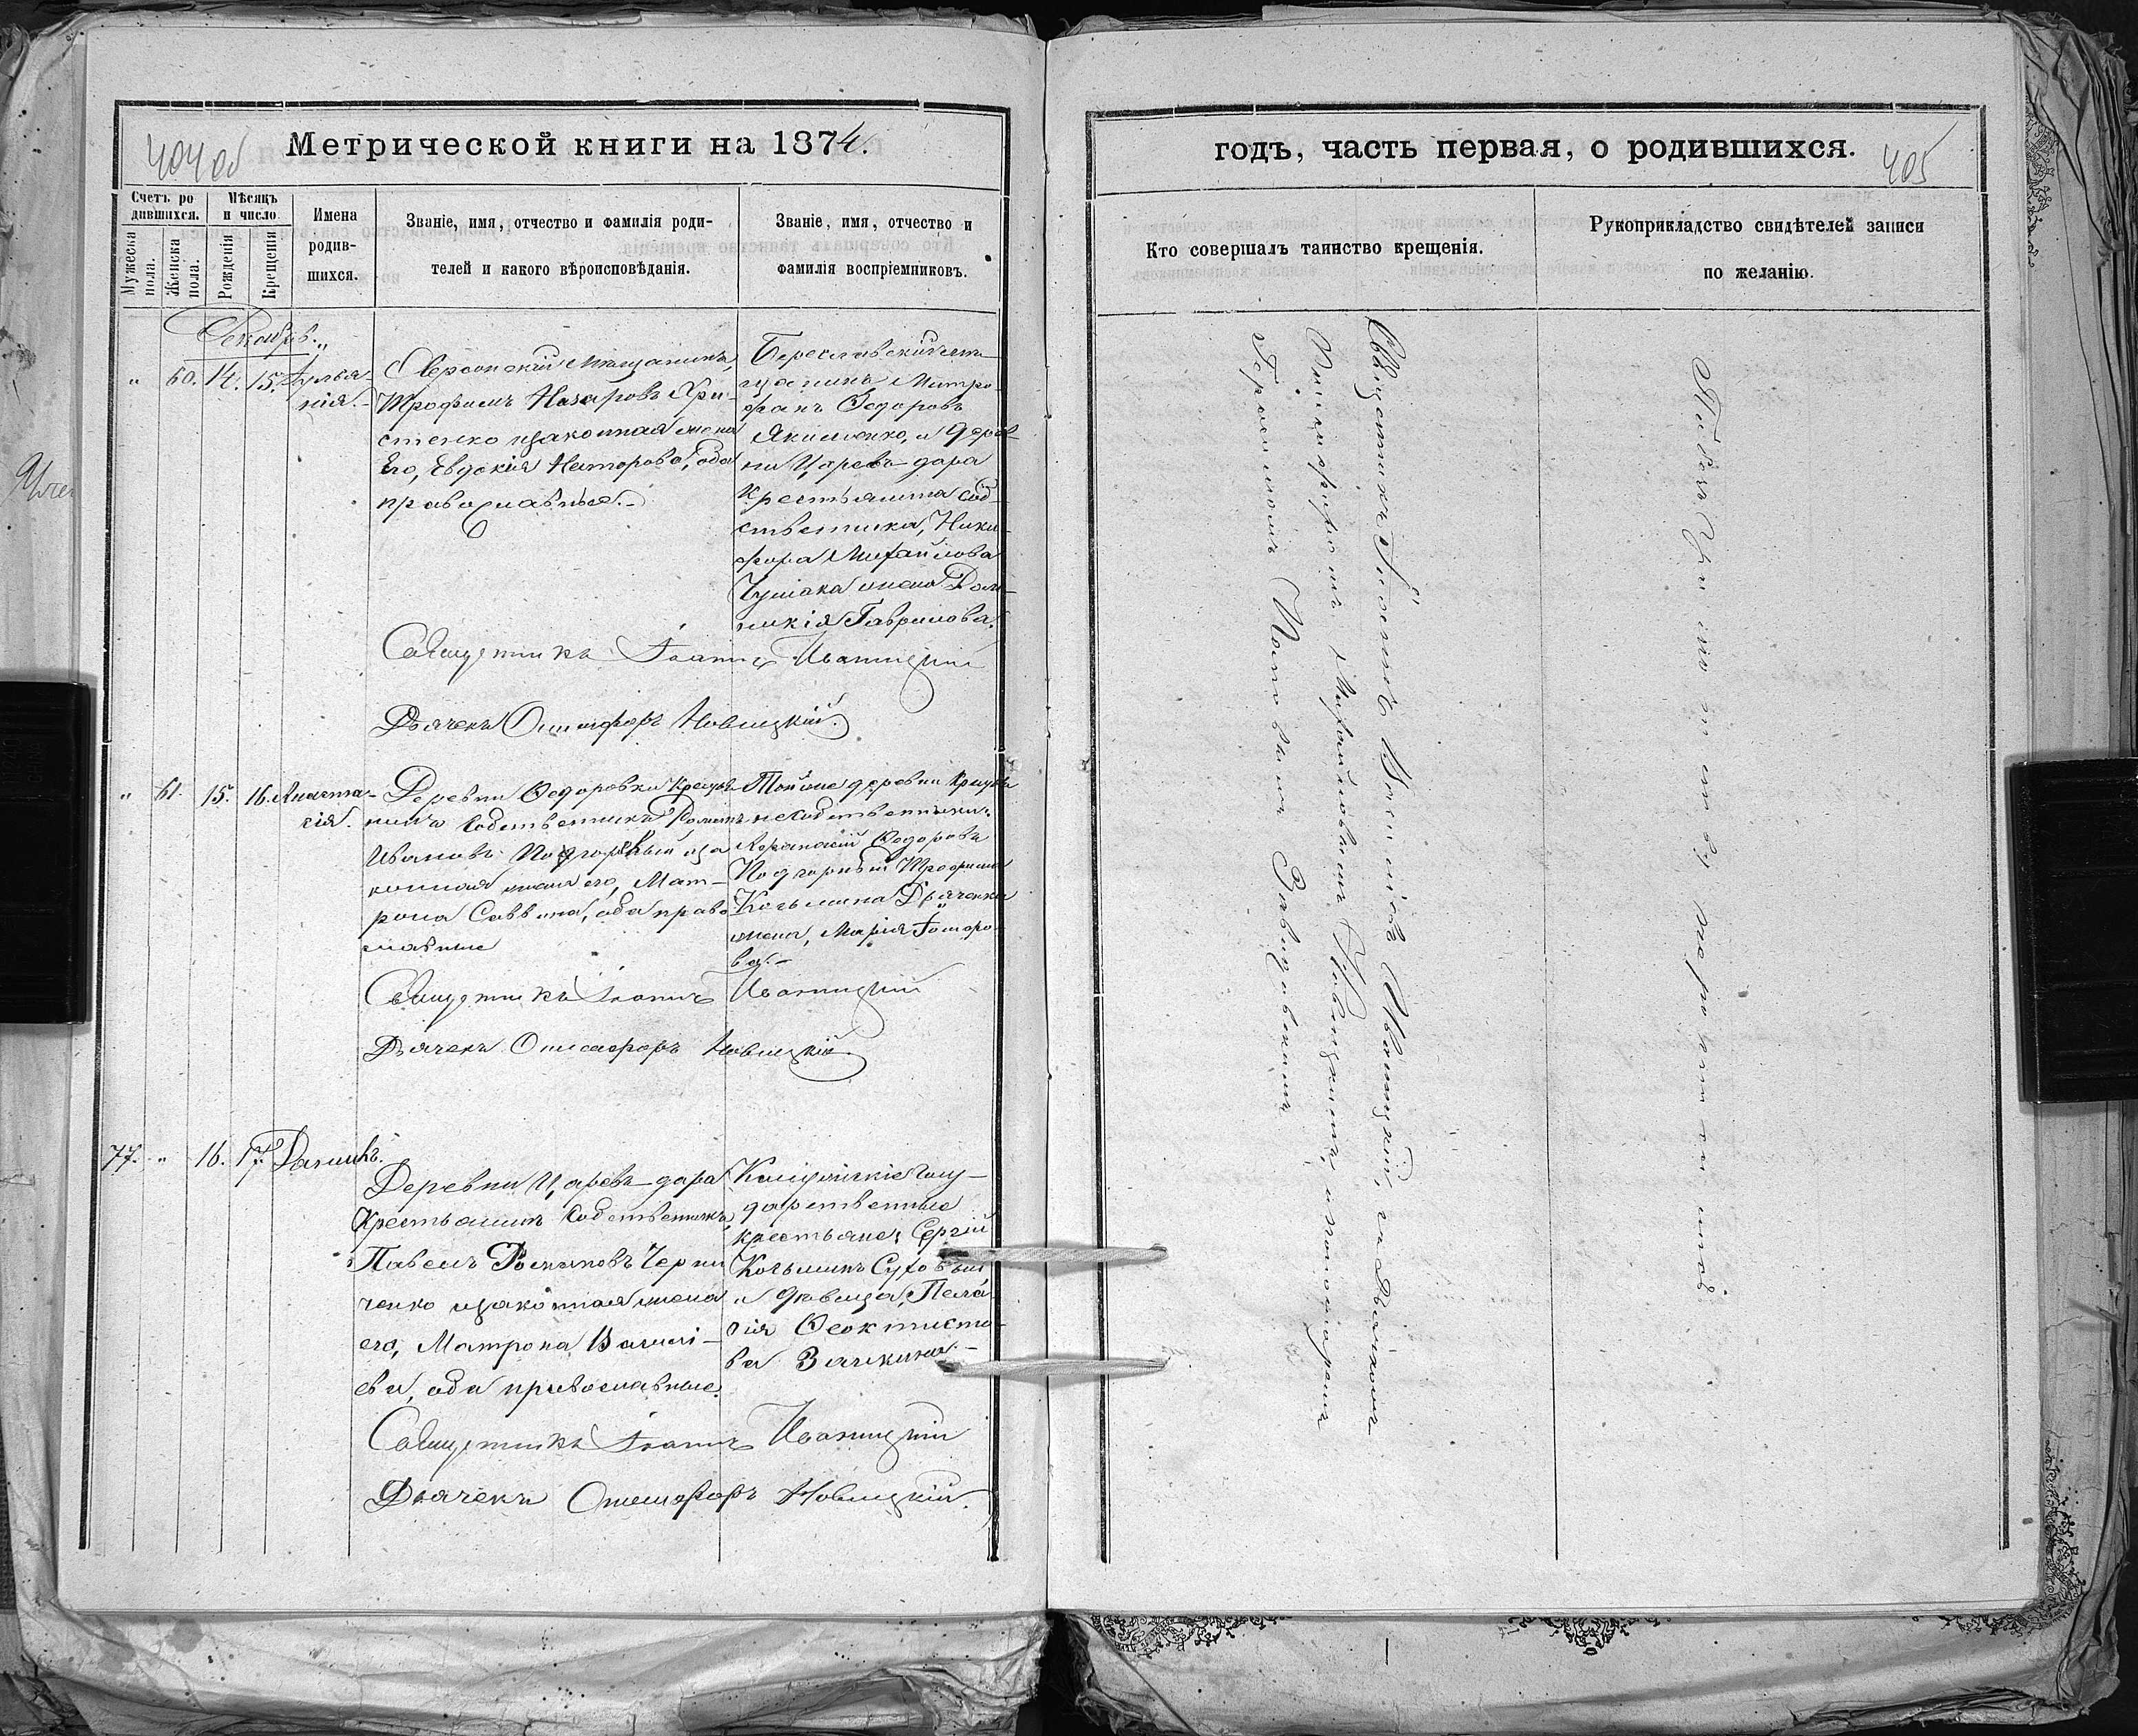 404 об
Метрической книги на 1874.
Счетъ ро
дившихся.
Мужеска
пола.
Женска
пола.
Мѣсяцъ
и число
Рожденія
Крещенія
Имена
родив-
шихся.
Званіе, имя, отчество и фамилія роди-
телей и какого вѣроисповѣданія.
Званіе, имя, отчество и
фамилія воспріемниковъ.
Декабрь.
" 60. 14. 15. Іулья-
нія.
Херсонскій мещанинъ,
Трофимъ Назаровъ Хри-
стенко изаконная жена
Его, Евдокія Несторова, оба
православные.-
Митро-
фанъ Ѳедоровъ
Якименко, и дерев-
ни Царевъ-дара
Крестьянина соб-
ственника, Ники-
фора Михайлова
Чумака жена До-
никія Гаврилова.
Священникъ Іоаннъ Иваницкій
Дьячекъ Онисифоръ Новицкій.
" 61. 15. 16. Анаста-
сія.
Деревни Ѳедоровки Крестья-
нинъ Собственникъ
Ивановъ Подгорный иза
конная жена его, Мат-
рона Саввина, оба право
славные
Тойже деревни Крестья
не Собственники:
Аѳанасій Ѳедоровъ
Подгорный Трофима
Козьмина Дьяченка
жена, Марія
ва.-
Священникъ Іоаннъ Иваницкій
Дьячекъ Онисифоръ Новицкій.
77. " 16. 17. Даніилъ.
Деревни Царевъ-дара
Крестьянинъ Собственникъ,
Павелъ Романовъ Черни
ченко изаконная жена
его, Матрона Василі-
ева, оба православные.
Госу-
дарственные
крестьяне: Сергій
Козьминъ Суховый
и дѣвица, Пела-
гія Ѳеоктисто-
ва
Священникъ Іоаннъ Иваницкій
Дьячекъ Онисифоръ Новицкій.
годъ, часть первая, о родившихся.
405
Кто совершалъ таинство крещенія.
Рукоприкладство свидѣтелей записи
по желанію.
Священникъ Іоаннъ Василіевъ Иваницкій, съ Дьячкомъ
Онисифоромъ Михайловымъ Новицкимъ, и пономаремъ